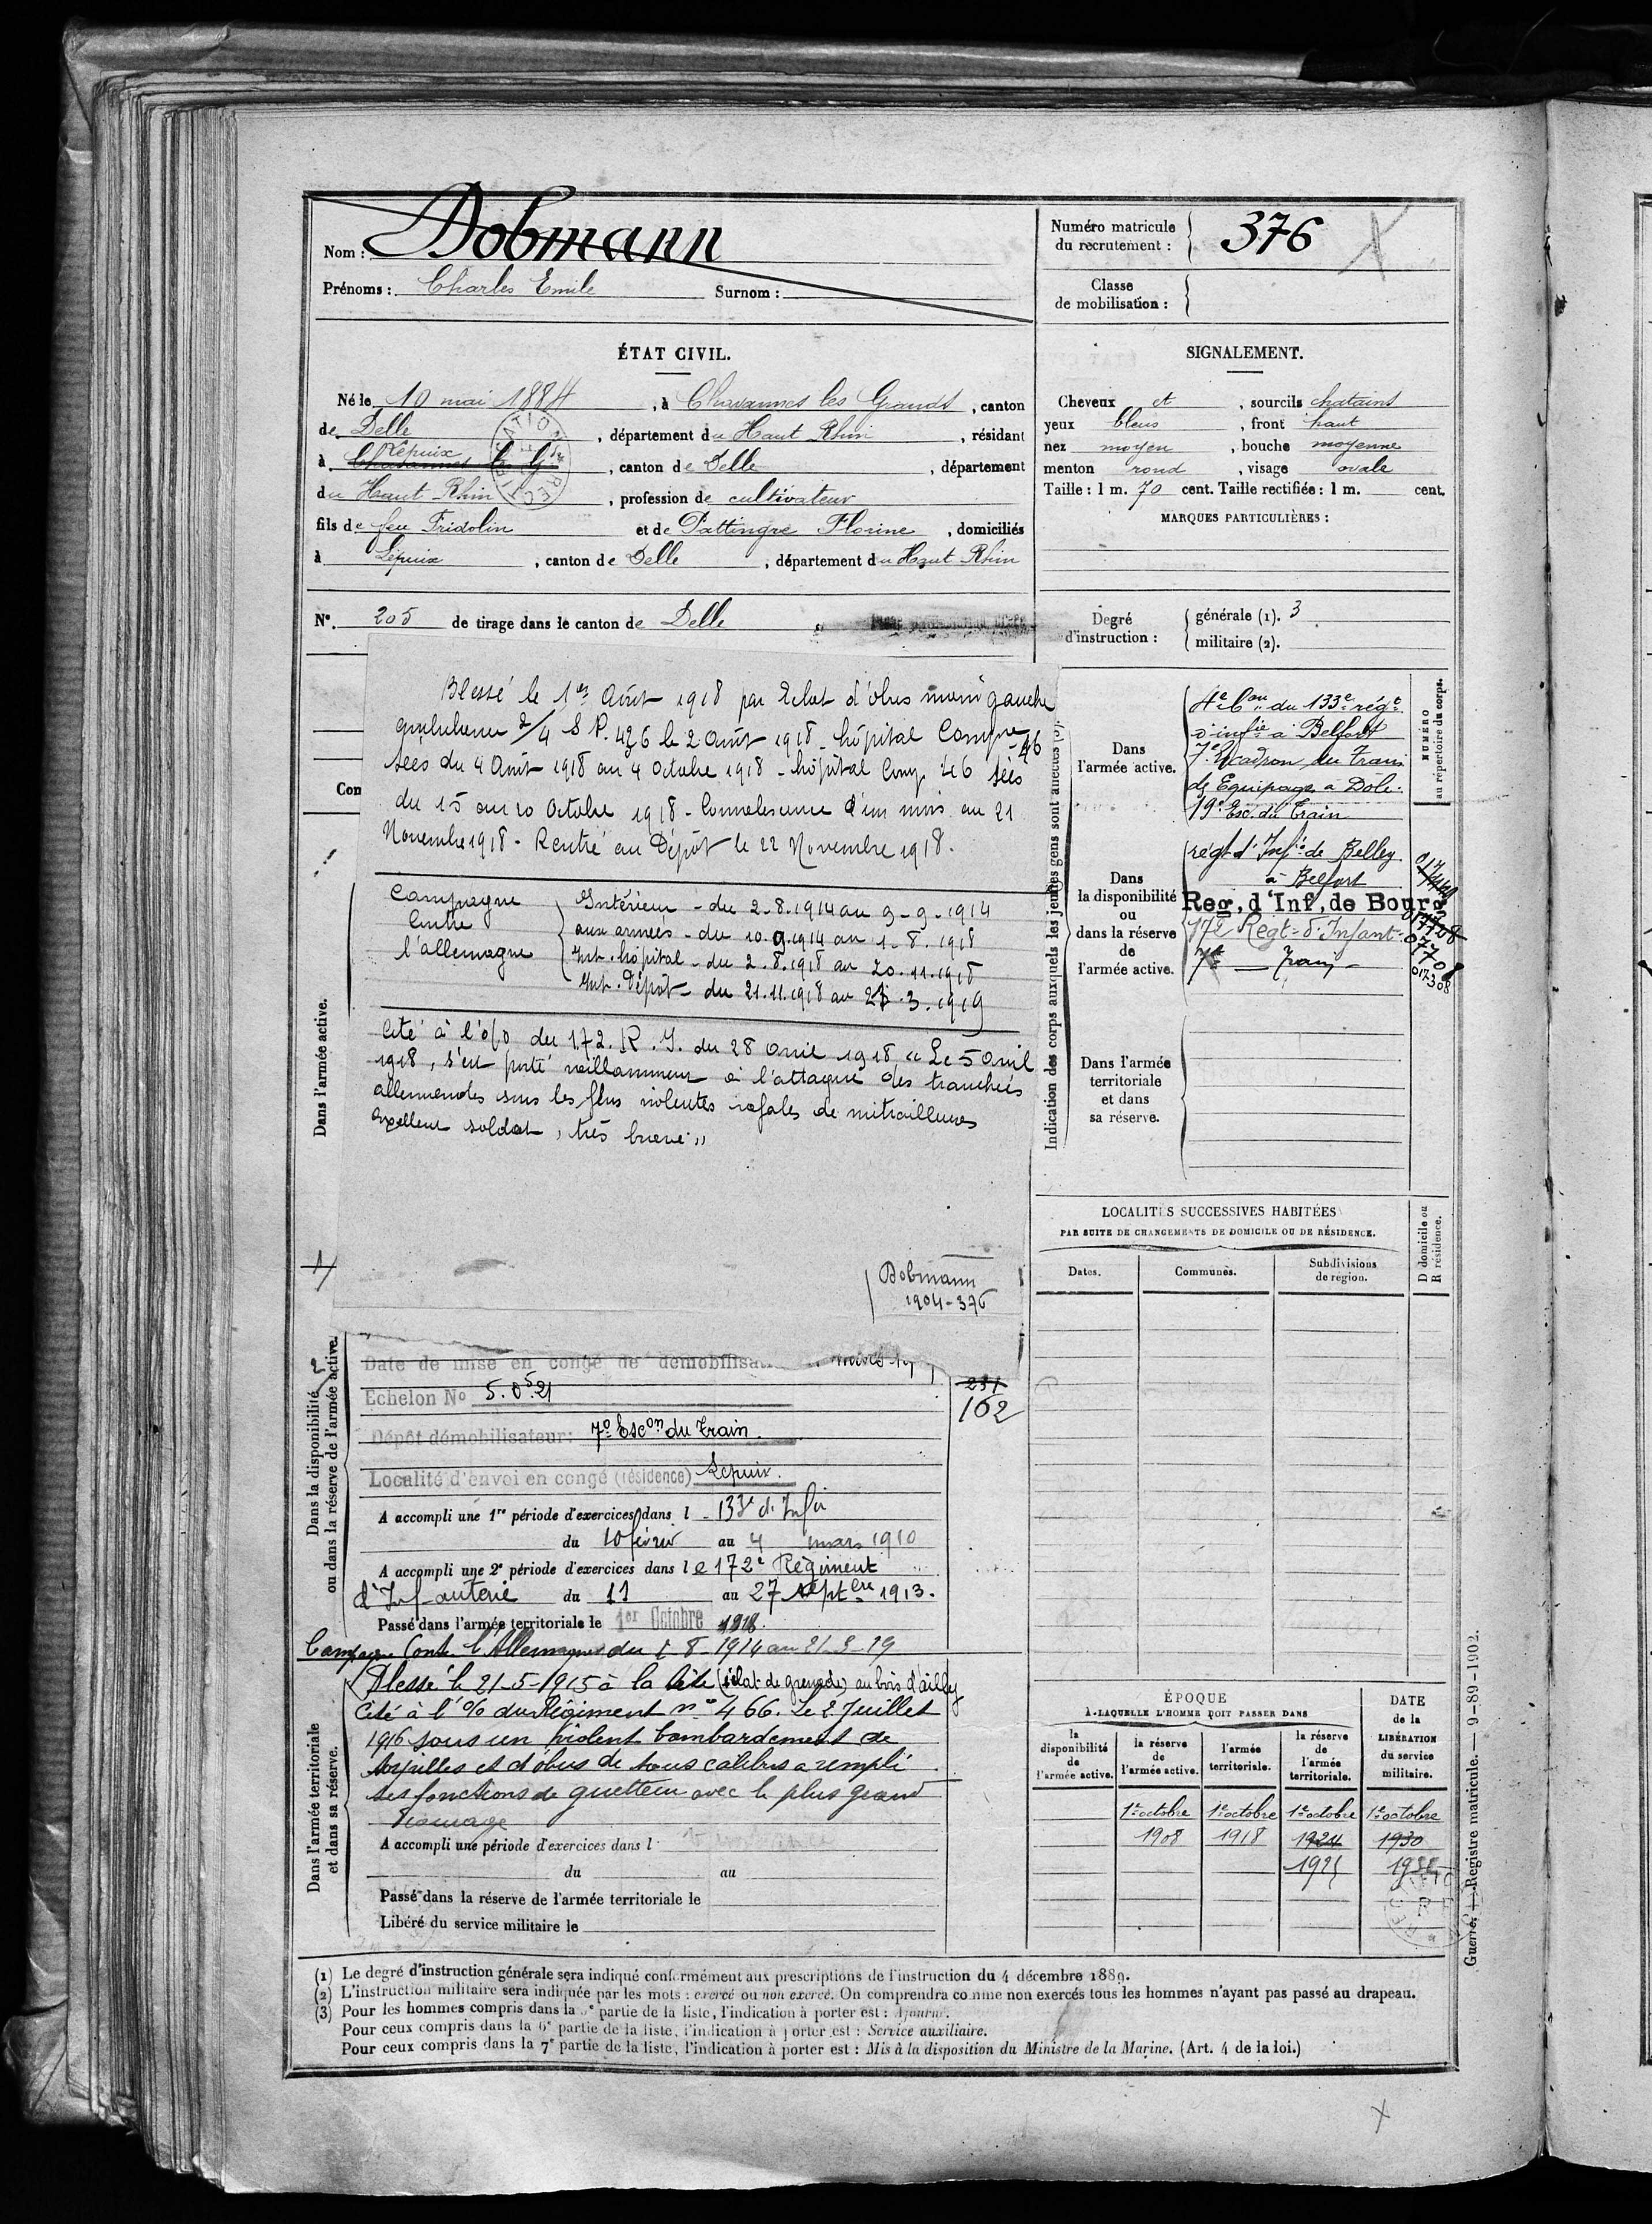 Nom : Dobmann
Prénoms : Charles Emile Surnom :
Numéro matricule
du recrutement : 376
Classe
de mobilisation :
ÉTAT CIVIL.
Né le 10 mai 1884, à Chavannes les Grands, canton
de Delle, département du Haut Rhin, résidant
à Chavannes les Gds Lepuix, canton de Delle, département
du Haut-Rhin, profession de cultivateur
fils de feu Fridolin et de Pattingre Florine, domiciliés
à Lepuix, canton de Delle, département du Haut-Rhin
N° 205 de tirage dans le canton de Delle
SIGNALEMENT.
Cheveux et, sourcils chatains
yeux bleus, front haut
nez moyen, bouche moyenne
menton rond, visage ovale
Taille : 1 m. 70 cent. Taille rectifiée : 1 m. cent.
MARQUES PARTICULIÈRES :
Degré
d'instruction :
générale (1). 3
militaire (2).
Blessé le 1er Août 1918 par Eclat d'obus main gauche
ambulance 2/4 S P. 426 le 2 Août 1918 - hôpital Compre 46
Sées du 4 Août 1918 au 4 Octobre 1918 - hôpital Comp 46 Sées
du 15 au 20 Octobre 1918 - Convalescence d'un mois au 21
Novembre 1918 - Rentré au Dépôt le 22 Novembre 1918.
Con
Campagne
Contre
l'allemagne
Intérieur - du 2-8-1914 au 9-9-1914
aux armées - du 10.9.1914 au 1-8.1918
Int. hôpital - du 2.8.1918 au 20.11.1918
Int. Dépôt - du 21.11.1918 au .3.1919
Cité à l'o/o du 172. R.I. du 28 Avril 1918 "Le 5 Avril
1918, s'est porté vaillamment à l'attaque des tranchées
allemandes sous les plus violentes rafales de mitrailleuses
Excellent soldat, très brave"
Dobmann
1904-376
Dans l'armée active.
Indication des corps auxquels les jeunes gens sont affectés (3).
Dans
l'armée active.
4e Bon du 133e régt
d'infie à Belfort
7e Escadron du Train
des Equipages à Dôle.
19e Esc. du Train
NUMÉRO
au répertoire du corps.
Dans
la disponibilité
ou
dans la réserve
de
l'armée active.
régt d'Infie de Belley
à Belfort
Reg. d'Inf. de Bourg
172 Regt d'Infant.
7e — Train —
Dans l'armée
territoriale
et dans
sa réserve.
LOCALITÉS SUCCESSIVES HABITÉES
PAR SUITE DE CHANGEMENTS DE DOMICILE OU DE RÉSIDENCE.
Dates.
Communes.
Subdivisions
de région.
D domicile ou
R résidence.
Dans la disponibilité
ou dans la réserve de l'armée active.
Date de mise en congé de démobilisat
Echelon No 5.
231
162
Dépôt démobilisateur: 7e Escon du Train.
Localité d'envoi en congé (résidence) Lepuix.
A accompli une 1re période d'exercices dans l 133e d'Infie
du 10 février au 4 mars 1910
A accompli une 2e période d'exercices dans le 172e Régiment
d'Infanterie du 11 au 27 septbre 1913.
Passé dans l'armée territoriale le 1er Octobre 1918.
Campagne Contre l'Allemagne du 2-8-1914 au 21-3-19
Dans l'armée territoriale
et dans sa réserve.
Blessé le 21-5-1915 à la tête (éclat de grenade) au bois d'ailly
Cité à l'o/o du Régiment n° 466. Le 2 Juillet
1916 sous un violent bombardement de
torpilles et d'obus de tous calibres a rempli
ses fonctions de guetteur avec le plus grand
courage
A accompli une période d'exercices dans l
du au
Passé dans la réserve de l'armée territoriale le
Libéré du service militaire le
ÉPOQUE
À LAQUELLE L'HOMME DOIT PASSER DANS
la
disponibilité
de
l'armée active.
la réserve
de
l'armée active.
l'armée
territoriale.
la réserve
de
l'armée
territoriale.
DATE
de la
LIBÉRATION
du service
militaire.
1er octobre 1er octobre 1er octobre 1er octobre
1908 1918 1924 1930
1925
Guerre. — Registre matricule. — 9-89-1902.
(1) Le degré d'instruction générale sera indiqué conformément aux prescriptions de l'instruction du 4 décembre 1889.
(2) L'instruction militaire sera indiquée par les mots : exercé ou non exercé. On comprendra comme non exercés tous les hommes n'ayant pas passé au drapeau.
(3) Pour les hommes compris dans la 5e partie de la liste, l'indication à porter est : Ajourné.
Pour ceux compris dans la 6e partie de la liste, l'indication à porter est : Service auxiliaire.
Pour ceux compris dans la 7e partie de la liste, l'indication à porter est : Mis à la disposition du Ministre de la Marine. (Art. 4 de la loi.)